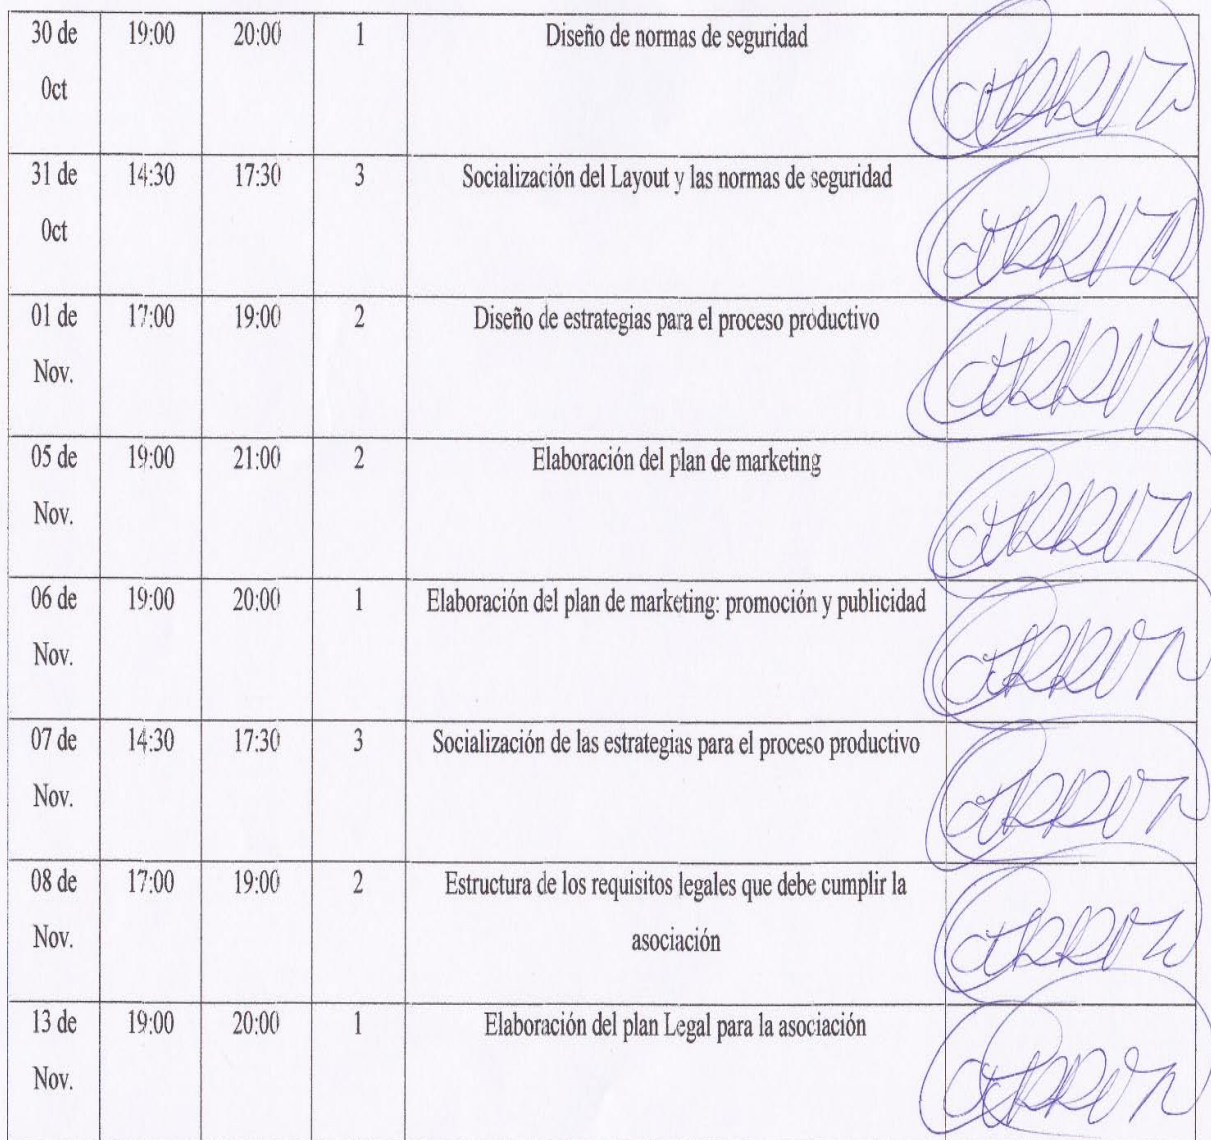 30 de 19:00 20:00 1 Diseño de normas de seguridad
Oct
31 de 14:30 17:30 3 Socialización del Layout y las normas de seguridad
Oct
01 de 17:00 19:00 2 Diseño de estrategias para el proceso productivo
Nov.
05 de 19:00 21:00 2 Elaboración del plan de marketing
Nov.
06 de 19:00 20:00 1 Elaboración del plan de marketing: promoción y publicidad
Nov.
07 de 14:30 17:30 3 Socialización de las estrategias para el proceso productivo
Nov.
08 de 17:00 19:00 2 Estructura de los requisitos legales que debe cumplir la
Nov. asociación
13 de 19:00 20:00 1 Elaboración del plan Legal para la asociación
Nov.